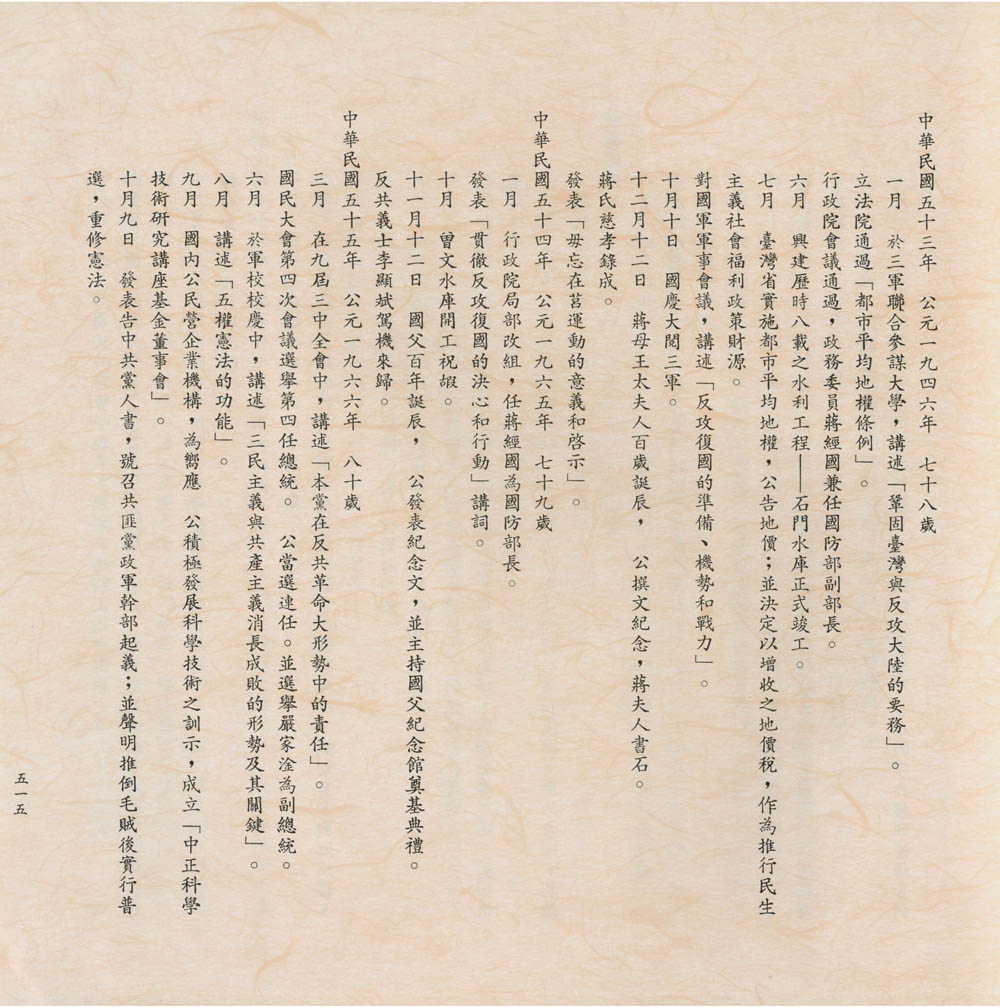 中華民國五十三年　公元一九四六年　七十八歲
一月　於三軍聯合參謀大學，講述「鞏固臺灣與反攻大陸的要務」。
立法院通過「都市平均地權條例」。
行政院會議通過，政務委員蔣經國兼任國防部副部長。
六月　興建歷時八載之水利工程——石門水庫正式竣工。
七月　臺灣省實施都市平均地權，公告地價；並決定以增收之地價稅，作為推行民生
主義社會福利政策財源。
對國軍軍事會議，講述「反攻復國的準備、機勢和戰力」。
十月十日　國慶大閱三軍。
十二月十二日　蔣母王太夫人百歲誕辰，　公撰文紀念，蔣夫人書石。
蔣氏慈孝錄成。
發表「毋忘在莒運動的意義和啓示」。
中華民國五十四年　公元一九六五年　七十九歲
一月　行政院局部改組，任蔣經國為國防部長。
發表「貫徹反攻復國的決心和行動」講詞。
十月　曾文水庫開工祝嘏。
十一月十二日　國父百年誕辰，　公發表紀念文，並主持國父紀念館奠基典禮。
反共義士李顯斌駕機來歸。
中華民國五十五年　公元一九六六年　八十歲
三月　在九屆三中全會中，講述「本黨在反共革命大形勢中的責任」。
國民大會第四次會議選舉第四任總統。　公當選連任。並選舉嚴家淦為副總統。
六月　於軍校校慶中，講述「三民主義與共產主義消長成敗的形勢及其關鍵」。
八月　講述「五權憲法的功能」。
九月　國內公民營企業機構，為嚮應　公積極發展科學技術之訓示，成立「中正科學
技術研究講座基金董事會」。
十月九日　發表告中共黨人書，號召共匪黨政軍幹部起義；並聲明推倒毛賊後實行普
選，重修憲法。
五一五